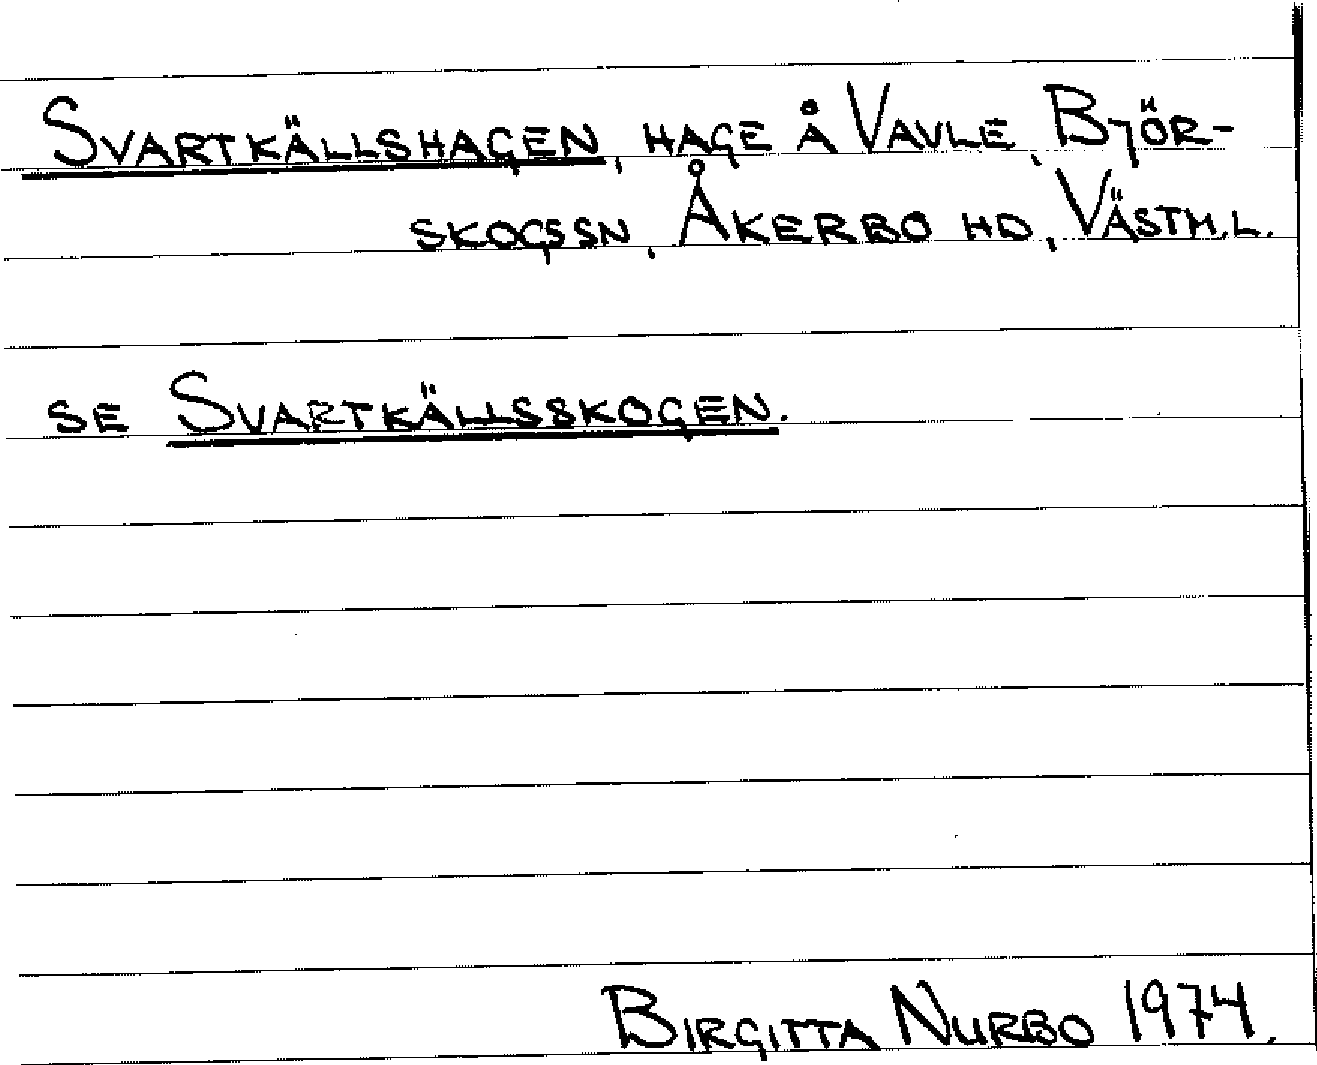 SVARTKÄLLSHAGEN, HAGE Å VAVLE, BJÖR-
SKOGSSN, ÅKERBO HD, VÄSTM.L.
SE SVARTKÄLLSSKOGEN.
BIRGITTA NURBO 1974.